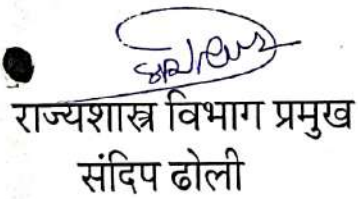 राज्यशास्त्र विभाग प्रमुख
संदिप ढोली